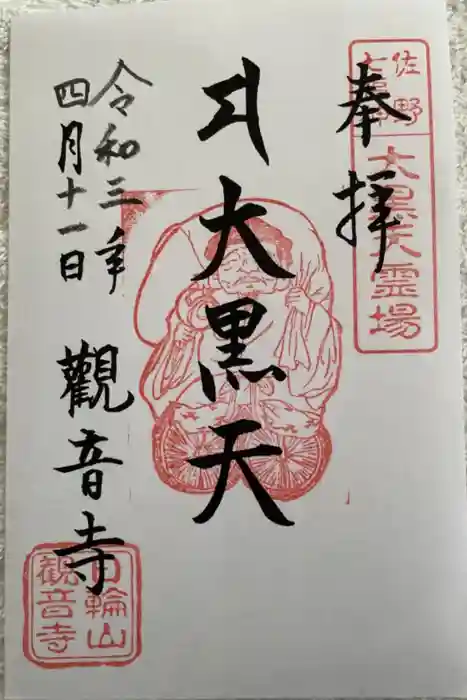 佐野
七福神
大黒天霊場
奉拝
大黒天
令和三年
四月十一日
觀音寺
月輪山
観音寺